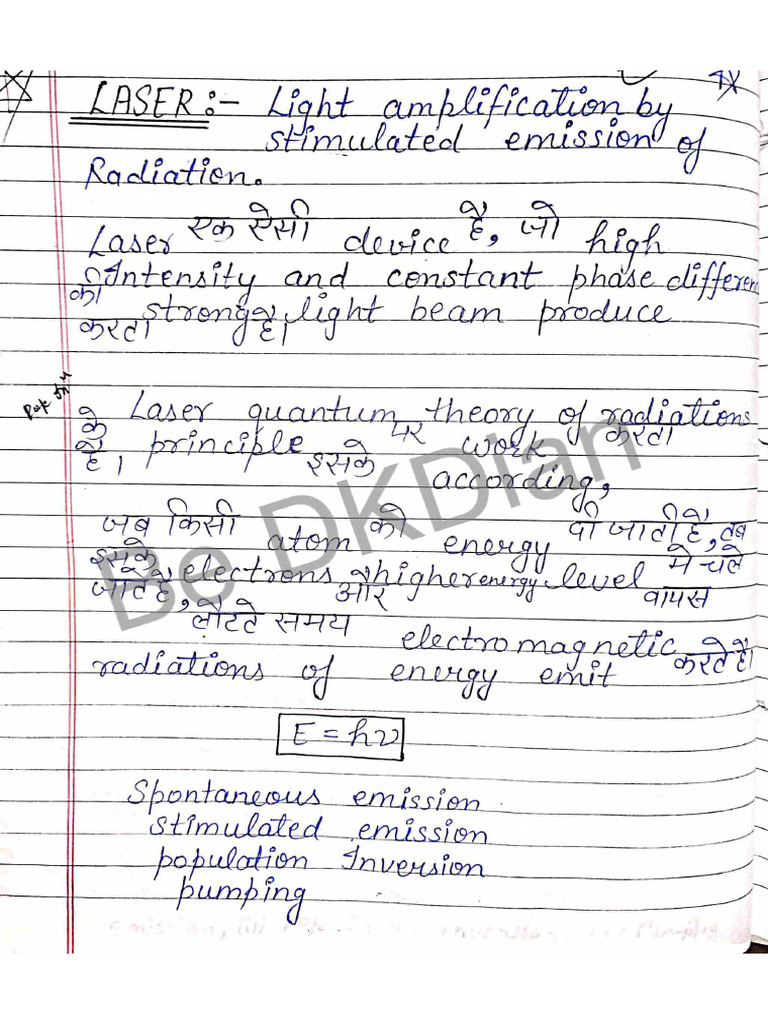 LASER :- Light amplification by
stimulated emission of
Radiation.
Laser एक ऐसी device है, जो high
Intensity and constant phase differen
की strong light beam produce
करता है।
Laser quantum theory of radiations
के principle पर work करता
है। इसके according,
जब किसी atom को energy दी जाती है, तब
इसके electrons higher energy level मे चले
जाते है, और वापस
लौटते समय electromagnetic
radiations of energy emit करते है।
E = hν
Spontaneous emission
stimulated emission
population Inversion
pumping
Be DKDian